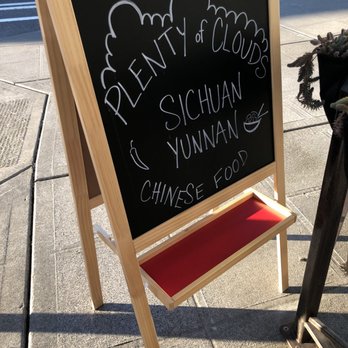 PLENTY of CLOUDS
SICHUAN
YUNNAN
CHINESE FOOD